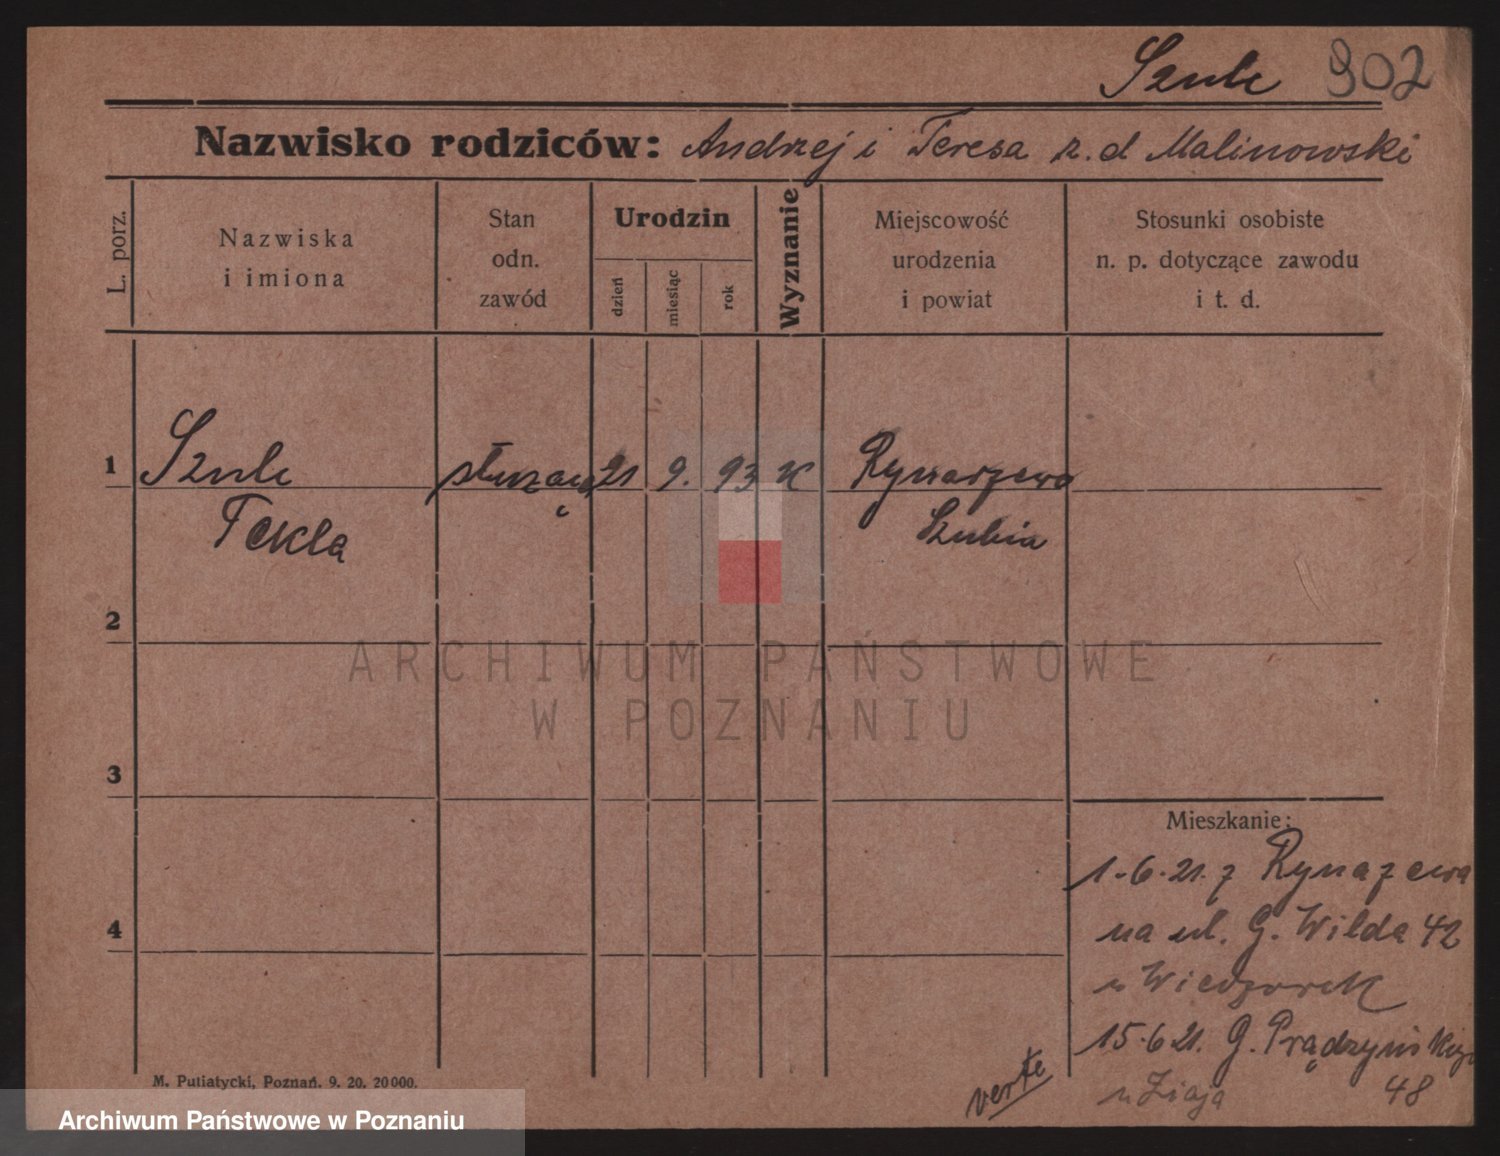 Szulc 902
Nazwisko rodziców: Andrzej i Teresa z. d Malinowski
L. porz.
Nazwiska
i imiona
Stan
odn.
zawód
Urodzin
dzień
miesiąc
rok
Wyznanie
Miejscowość
urodzenia
i powiat
Stosunki osobiste
n. p. dotyczące zawodu
i t. d.
1 Szulc służąca 21 9. 93 K Rynarzewo
Tekla Szubin
2
3
4
Mieszkanie:
1.6.21. z Rynarzewa
na ul. G. Wilda 42
u Wieczorek
15.6.21. G. Prądzyńskiego
u Ziaja 48
verte
M. Putiatycki, Poznań. 9. 20. 20000.
ARCHIWUM PAŃSTWOWE
W POZNANIU
Archiwum Państwowe w Poznaniu